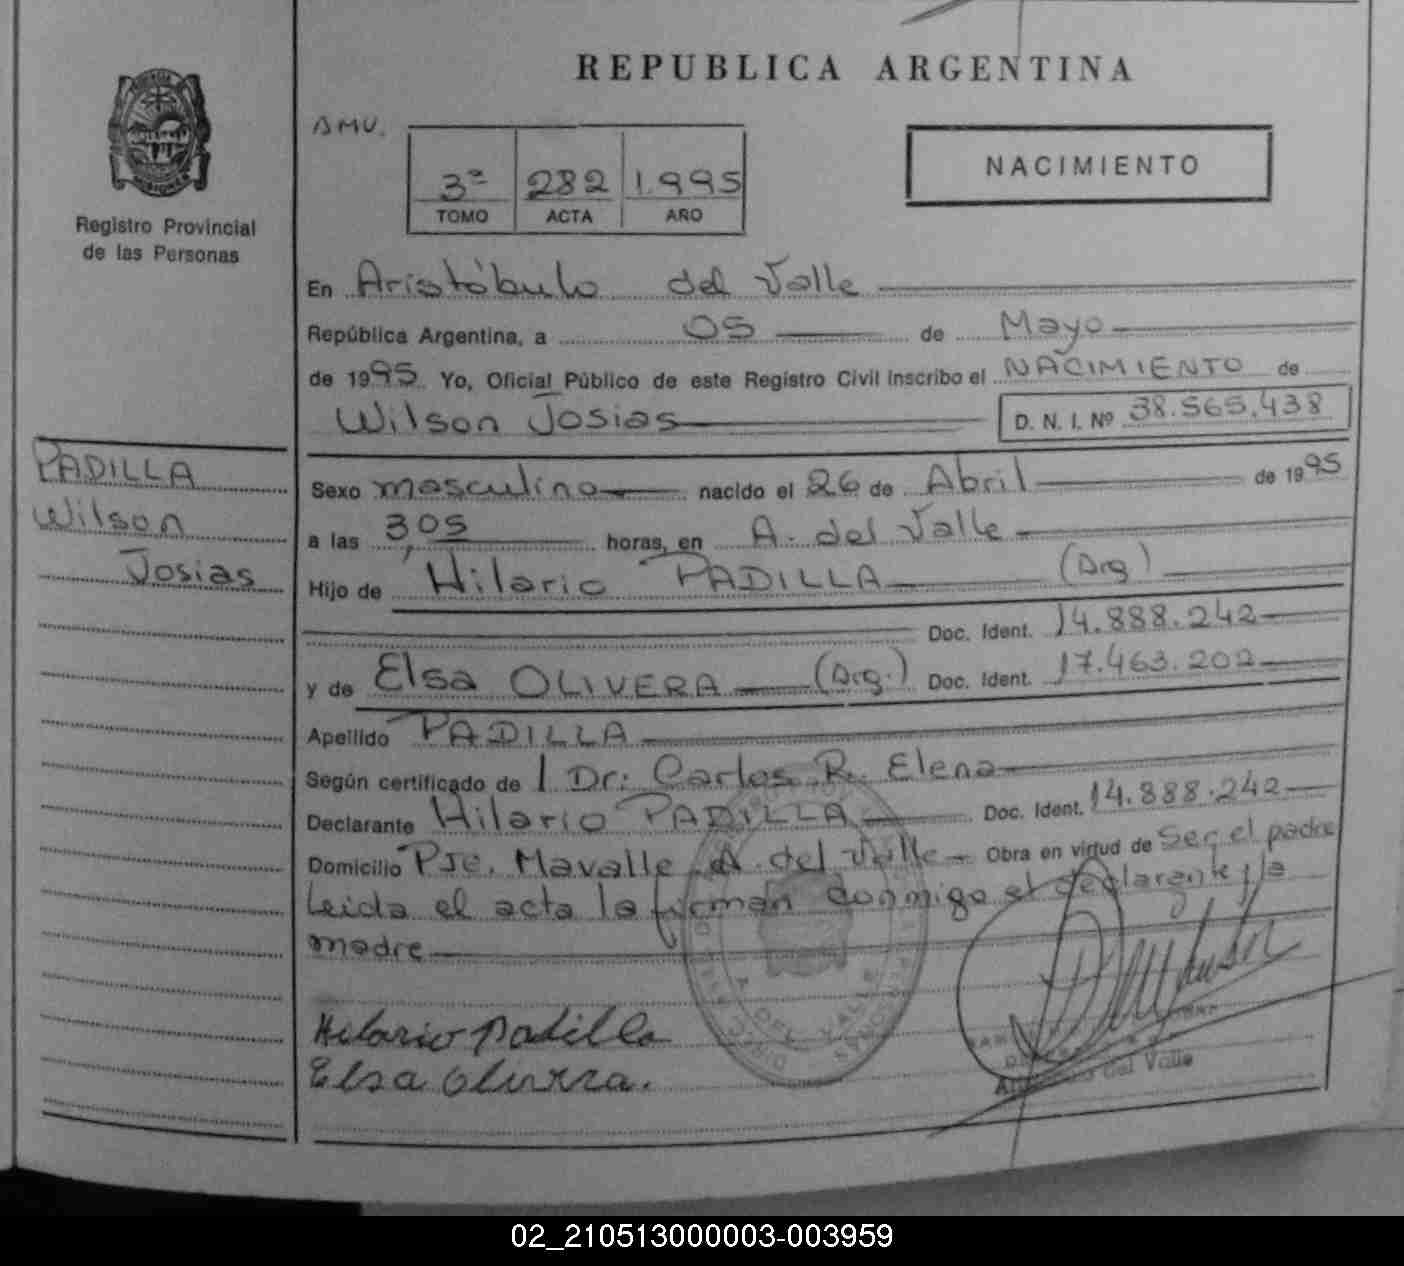 REPUBLICA ARGENTINA
PROVINCIA
MISIONES
Registro Provincial
de las Personas
AMU.
3ª 282 1.995
TOMO ACTA AÑO
NACIMIENTO
En Aristóbulo del Valle
República Argentina, a 05 de Mayo
de 1995 Yo, Oficial Público de este Registro Civil inscribo el NACIMIENTO de
Wilson Josias D. N. I. Nº 38.565.438
PADILLA
Wilson
Josias
Sexo masculino nacido el 26 de Abril de 1995
a las 3,05 horas, en A. del Valle
Hijo de Hilario PADILLA (Arg)
Doc. Ident. 14.888.242
y de Elsa OLIVERA (Arg.) Doc. Ident. 17.463.202
Apellido PADILLA
Según certificado de Dr: Carlos R. Elena
Declarante Hilario PADILLA Doc. Ident. 14.888.242
Domicilio Pje. Mavalle A. del Valle Obra en virtud de Ser el padre
Leida el acta la firman conmigo el declarante y la
madre
Hilario Padilla
Elsa Olivera.
A. DEL VALLE
del Valle
02_210513000003-003959